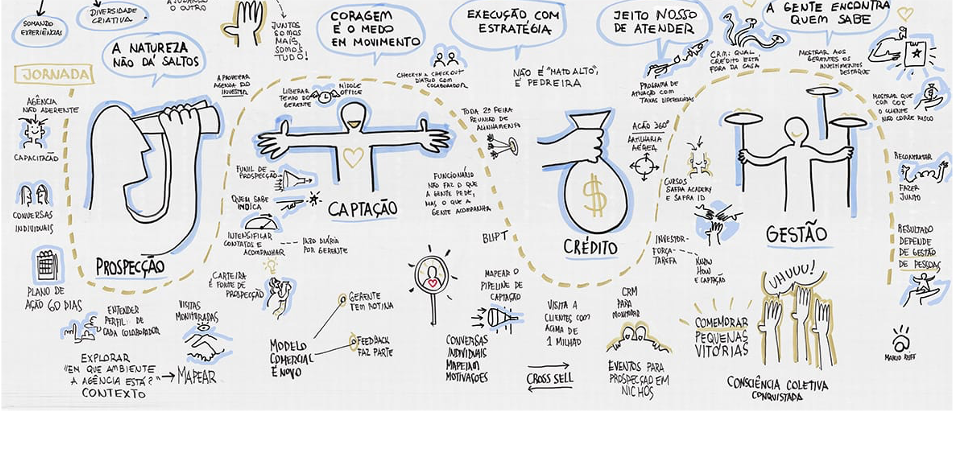 SOMANDO
EXPERIÊNCIAS
DIVERSIDADE
CRIATIVA
O OUTRO
JUNTOS
SOMOS
MAIS,
SOMOS
TUDO!
CORAGEM
É O MEDO
EM MOVIMENTO
EXECUÇÃO COM
ESTRATÉGIA
JEITO NOSSO
DE ATENDER
A GENTE ENCONTRA
QUEM SABE
A NATUREZA
NÃO DÁ SALTOS
JORNADA
AGÊNCIA
NÃO ADERENTE
CAPACITAÇÃO
CONVERSAS
INDIVIDUAIS
PLANO DE
AÇÃO 60 DIAS
PROSPECÇÃO
A PROVEITAR
AGENDA DO
INVESTIR
LIBERAR
TEMPO DO
GERENTE
MIDDLE
OFFICE
CHECK IN E CHECK OUT
DIÁTRIO COM
COLABORADOR
FUNIL DE
PROSPECÇÃO
QUEM SABE
INDICA
INTENSIFICAR
CONTATOS E
ACOMPANHAR
INPO DIÁRIO
POR GERENTE
CARTEIRA
É FONTE DE
PROSPECÇÃO
CAPTAÇÃO
TODA 2ª FEIRA
REUNIÃO DE
ALINHAMENTO
FUNCIONÁRIO
NÃO FAZ O QUE
A GENTE PEDE,
MAS O QUE A
GENTE ACOMPANHA
NÃO É "MATO ALTO",
É PEDREIRA
CRÉDITO
PROGRAMA DE
ATUAÇÃO COM
TAXAS DIFERENCIADAS
AÇÃO 360°
ARTILHARIA
AÉREA
C.R.M: QUAL
CRÉDITO ESTÁ
FORA DA CASA
MOSTRAR AOS
GERENTES OS
INVESTIMENTOS
DESTAQUE
CURSOS
SAFRA ACADEMY
E SAFRA ID
INVESTOR-
FORÇA-
TAREFA
KNOW
HOW
E CAPTAÇÃO
GESTÃO
MOSTRAR QUE
COM COE
O CLIENTE
NÃO CORRE RISCO
RECONTRATAR
FAZER
JUNTO
RESULTADO
DEPENDE
DE GESTÃO
DE PESSOAS
ENTENDER
PERFIL DE
CADA COLABORADOR
VISITAS
MONITORADAS
EXPLORAR
"EM QUE AMBIENTE
A AGÊNCIA ESTÁ?" → MAPEAR
CONTEXTO
MODELO
COMERCIAL
É NOVO
GERENTE
TEM ROTINA
FEEDBACK
FAZ PARTE
MAPEAR O
PIPELINE DE
CAPTAÇÃO
CONVERSAS
INDIVIDUAIS
MAPEIAM
MOTIVAÇÕES
VISITA A
CLIENTES COM
ACIMA DE
1 MILHÃO
CROSS SELL
CRM
PARA
MONITORAR
EVENTOS PARA
PROSPECÇÃO EM
NICHOS
COMEMORAR
PEQUENAS
VITÓRIAS
UHUUU!
CONSCIÊNCIA COLETIVA
CONQUISTADA